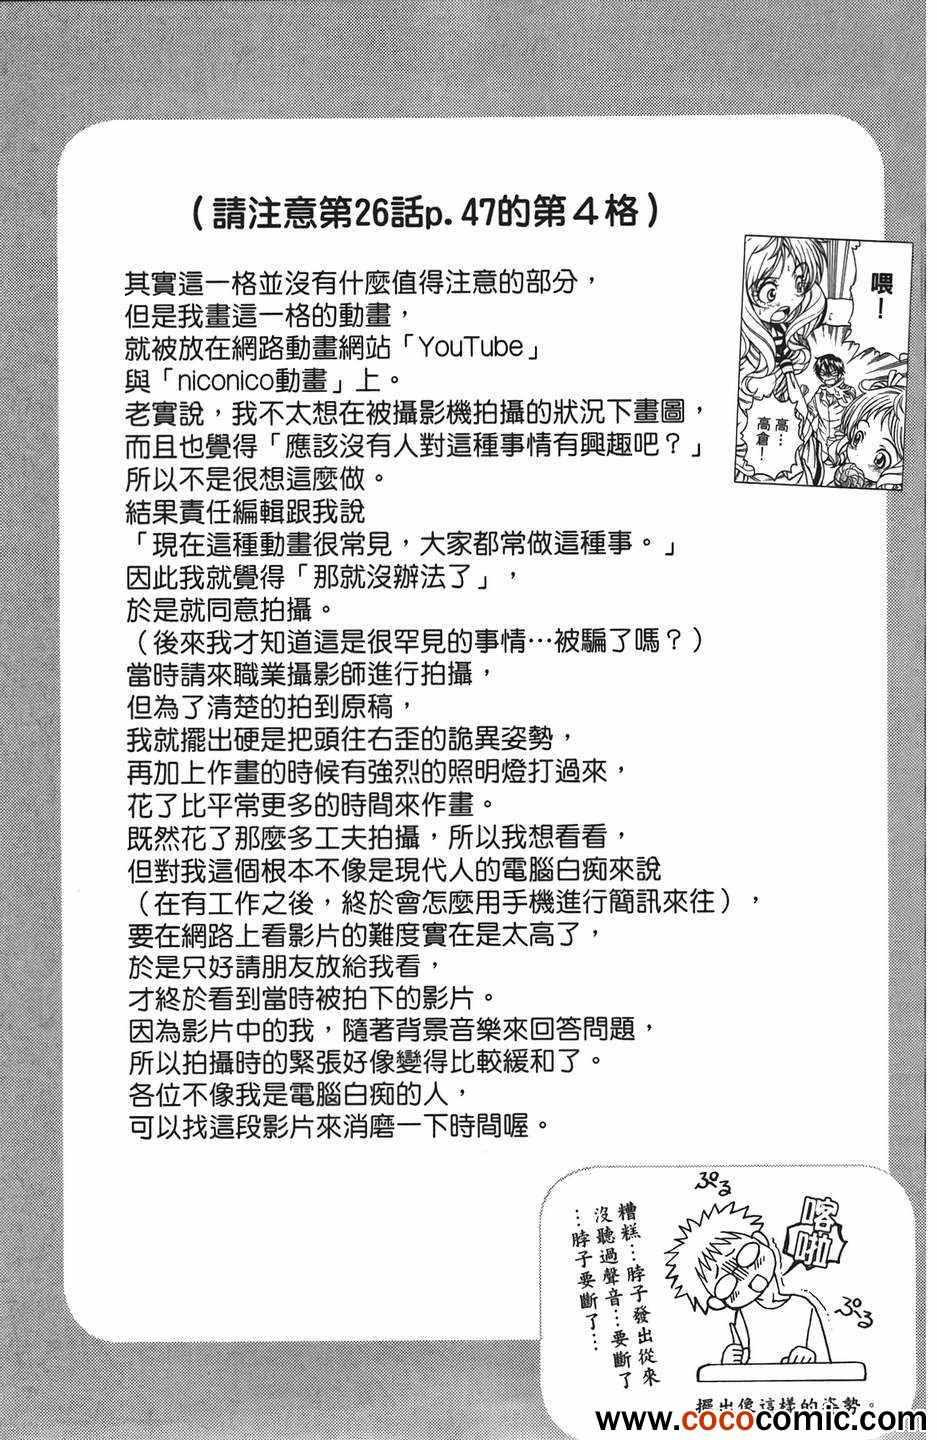 （請注意第26話p.47的第４格）
其實這一格並沒有什麼值得注意的部分，
但是我畫這一格的動畫，
就被放在網路動畫網站「YouTube」
與「niconico動畫」上。
老實說，我不太想在被攝影機拍攝的狀況下畫圖，
而且也覺得「應該沒有人對這種事情有興趣吧？」
所以不是很想這麼做。
結果責任編輯跟我說
「現在這種動畫很常見，大家都常做這種事。」
因此我就覺得「那就沒辦法了」，
於是就同意拍攝。
（後來我才知道這是很罕見的事情…被騙了嗎？）
當時請來職業攝影師進行拍攝，
但為了清楚的拍到原稿，
我就擺出硬是把頭往右歪的詭異姿勢，
再加上作畫的時候有強烈的照明燈打過來，
花了比平常更多的時間來作畫。
既然花了那麼多工夫拍攝，所以我想看看，
但對我這個根本不像是現代人的電腦白痴來說
（在有工作之後，終於會怎麼用手機進行簡訊來往），
要在網路上看影片的難度實在是太高了，
於是只好請朋友放給我看，
才終於看到當時被拍下的影片。
因為影片中的我，隨著背景音樂來回答問題，
所以拍攝時的緊張好像變得比較緩和了。
各位不像我是電腦白痴的人，
可以找這段影片來消磨一下時間喔。
喂！
高…
高倉！
ぷる
喀啦
ぷる
糟糕…脖子發出從來
沒聽過聲音…要斷了
…脖子要斷了…
擺出像這樣的姿勢。
www.cococomic.com